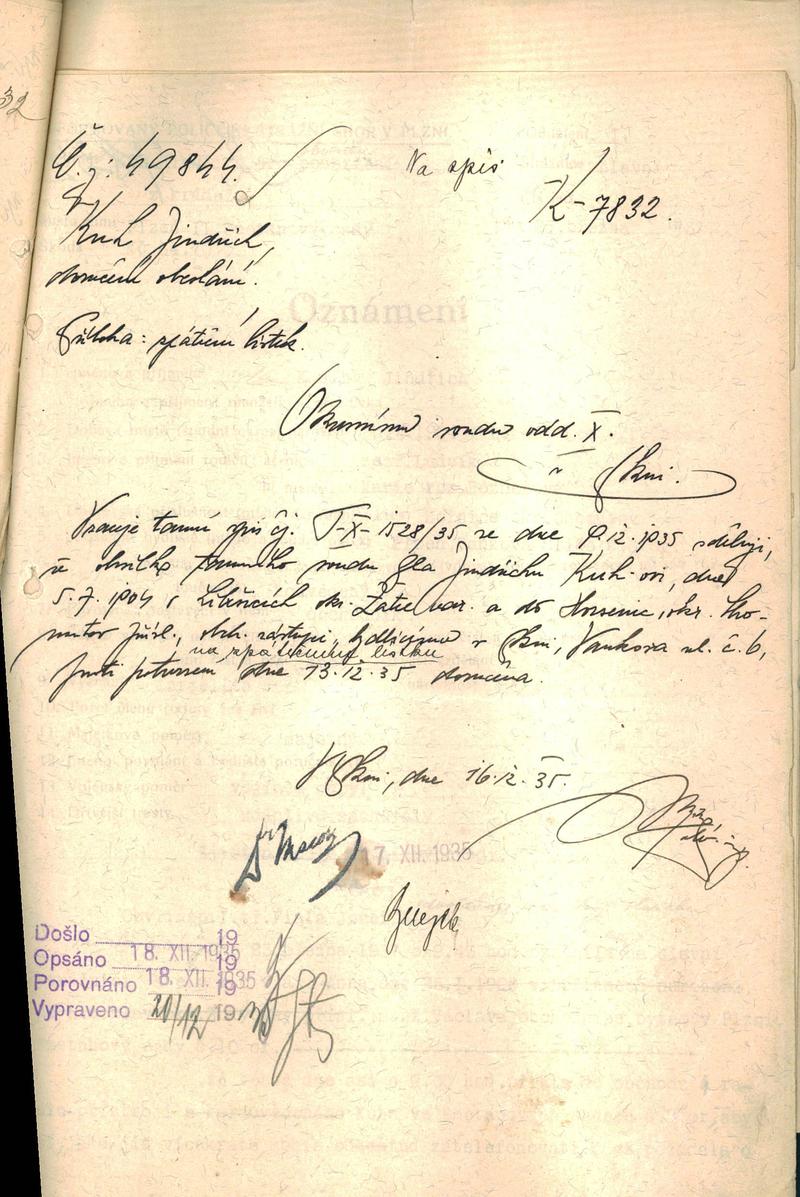 Č.j: 49844.
Na spis
K-7832.
Kuh Jindřich,
doručení obeslání.
Příloha: zpáteční lístek.
Okresnímu soudu odd. X.
v Plzni.
Vracuje tamní spis čj. T-X-1528/35 ze dne 9.12.1935 sděluji,
že obsílka tamního soudu pro Jindřicha Kuh-ovi, dne
5.7.1904 v okr. Žatec nar. a do okr. Cho-
mutov přísl., obch. zástupci, bydlícímu v Plzni, Vaňkova ul. č. 6,
na zpátečnímu lístku
proti potvrzení dne 13.12.35 doručena.
V Plzni, dne 16.12.35.
17. XII. 1935
Došlo 19
Opsáno 18. XII. 1935 19
Porovnáno 18. XII. 1935 19
Vypraveno 20/12 19